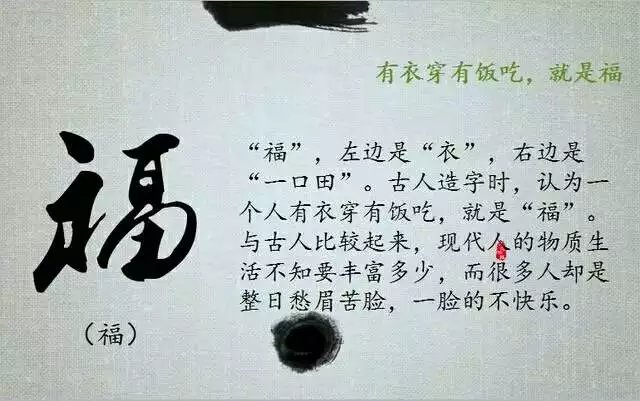 有衣穿有饭吃，就是福
福
（福）
“福”，左边是“衣”，右边是
“一口田”。古人造字时，认为一
个人有衣穿有饭吃，就是“福”。
与古人比较起来，现代人的物质生
活不知要丰富多少，而很多人却是
整日愁眉苦脸，一脸的不快乐。